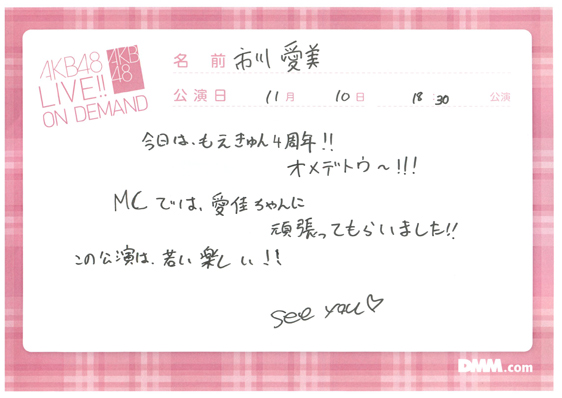 AKB48
LIVE!!
ON DEMAND
AKB
48
名 前 市川 愛美
公演日 11月 10日 18 30 公演
今日は、もえきゅん4周年!!
オメデトウ〜!!!
MCでは、愛佳ちゃんに
頑張ってもらいました!!
この公演は、若い楽しい!!
see you♡
DMM.com